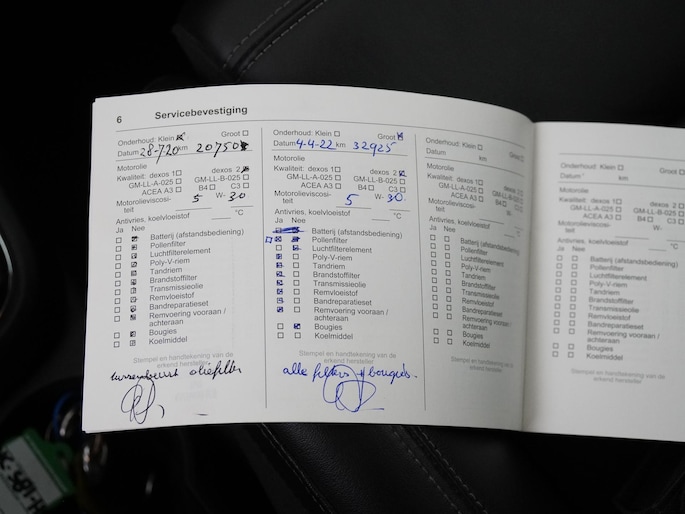 6 Servicebevestiging
Onderhoud: Klein ☒ Groot ☐
Datum 28-720 km 20750
Motorolie
Kwaliteit: dexos 1 ☐ dexos 2 ☒
GM-LL-A-025 ☐ GM-LL-B-025 ☐
ACEA A3 ☐ B4 ☐ C3 ☐
Motorolieviscosi-
teit 5 W- 30
Antivries, koelvloeistof °C
Ja Nee
Batterij (afstandsbediening)
Pollenfilter
Luchtfilterelement
Poly-V-riem
Tandriem
Brandstoffilter
Transmissieolie
Remvloeistof
Bandreparatieset
Remvoering vooraan /
achteraan
Bougies
Koelmiddel
Stempel en handtekening van de
erkend hersteller
tussenbeurt oliefilter
Onderhoud: Klein ☐ Groot ☒
Datum 4-4-22 km 32925
Motorolie
Kwaliteit: dexos 1 ☐ dexos 2 ☒
GM-LL-A-025 ☐ GM-LL-B-025 ☐
ACEA A3 ☐ B4 ☐ C3 ☐
Motorolieviscosi-
teit 5 W- 30
Antivries, koelvloeistof °C
Ja Nee
Batterij (afstandsbediening)
Pollenfilter
Luchtfilterelement
Poly-V-riem
Tandriem
Brandstoffilter
Transmissieolie
Remvloeistof
Bandreparatieset
Remvoering vooraan /
achteraan
Bougies
Koelmiddel
Stempel en handtekening van de
erkend hersteller
alle filters + bougies.
Onderhoud: Klein ☐ Groot ☐
Datum km
Motorolie
Kwaliteit: dexos 1 ☐ dexos 2 ☐
GM-LL-A-025 ☐ GM-LL-B-025 ☐
ACEA A3 ☐ B4 ☐ C3 ☐
Motorolieviscosi-
teit W-
Antivries, koelvloeistof °C
Ja Nee
Batterij (afstandsbediening)
Pollenfilter
Luchtfilterelement
Poly-V-riem
Tandriem
Brandstoffilter
Transmissieolie
Remvloeistof
Bandreparatieset
Remvoering vooraan /
achteraan
Bougies
Koelmiddel
Stempel en handtekening van de
erkend hersteller
Onderhoud: Klein ☐ Groot ☐
Datum km
Motorolie
Kwaliteit: dexos 1 ☐ dexos 2 ☐
GM-LL-A-025 ☐ GM-LL-B-025 ☐
ACEA A3 ☐ B4 ☐ C3 ☐
Motorolieviscosi-
teit W-
Antivries, koelvloeistof °C
Ja Nee
Batterij (afstandsbediening)
Pollenfilter
Luchtfilterelement
Poly-V-riem
Tandriem
Brandstoffilter
Transmissieolie
Remvloeistof
Bandreparatieset
Remvoering vooraan /
achteraan
Bougies
Koelmiddel
Stempel en handtekening van de
erkend hersteller